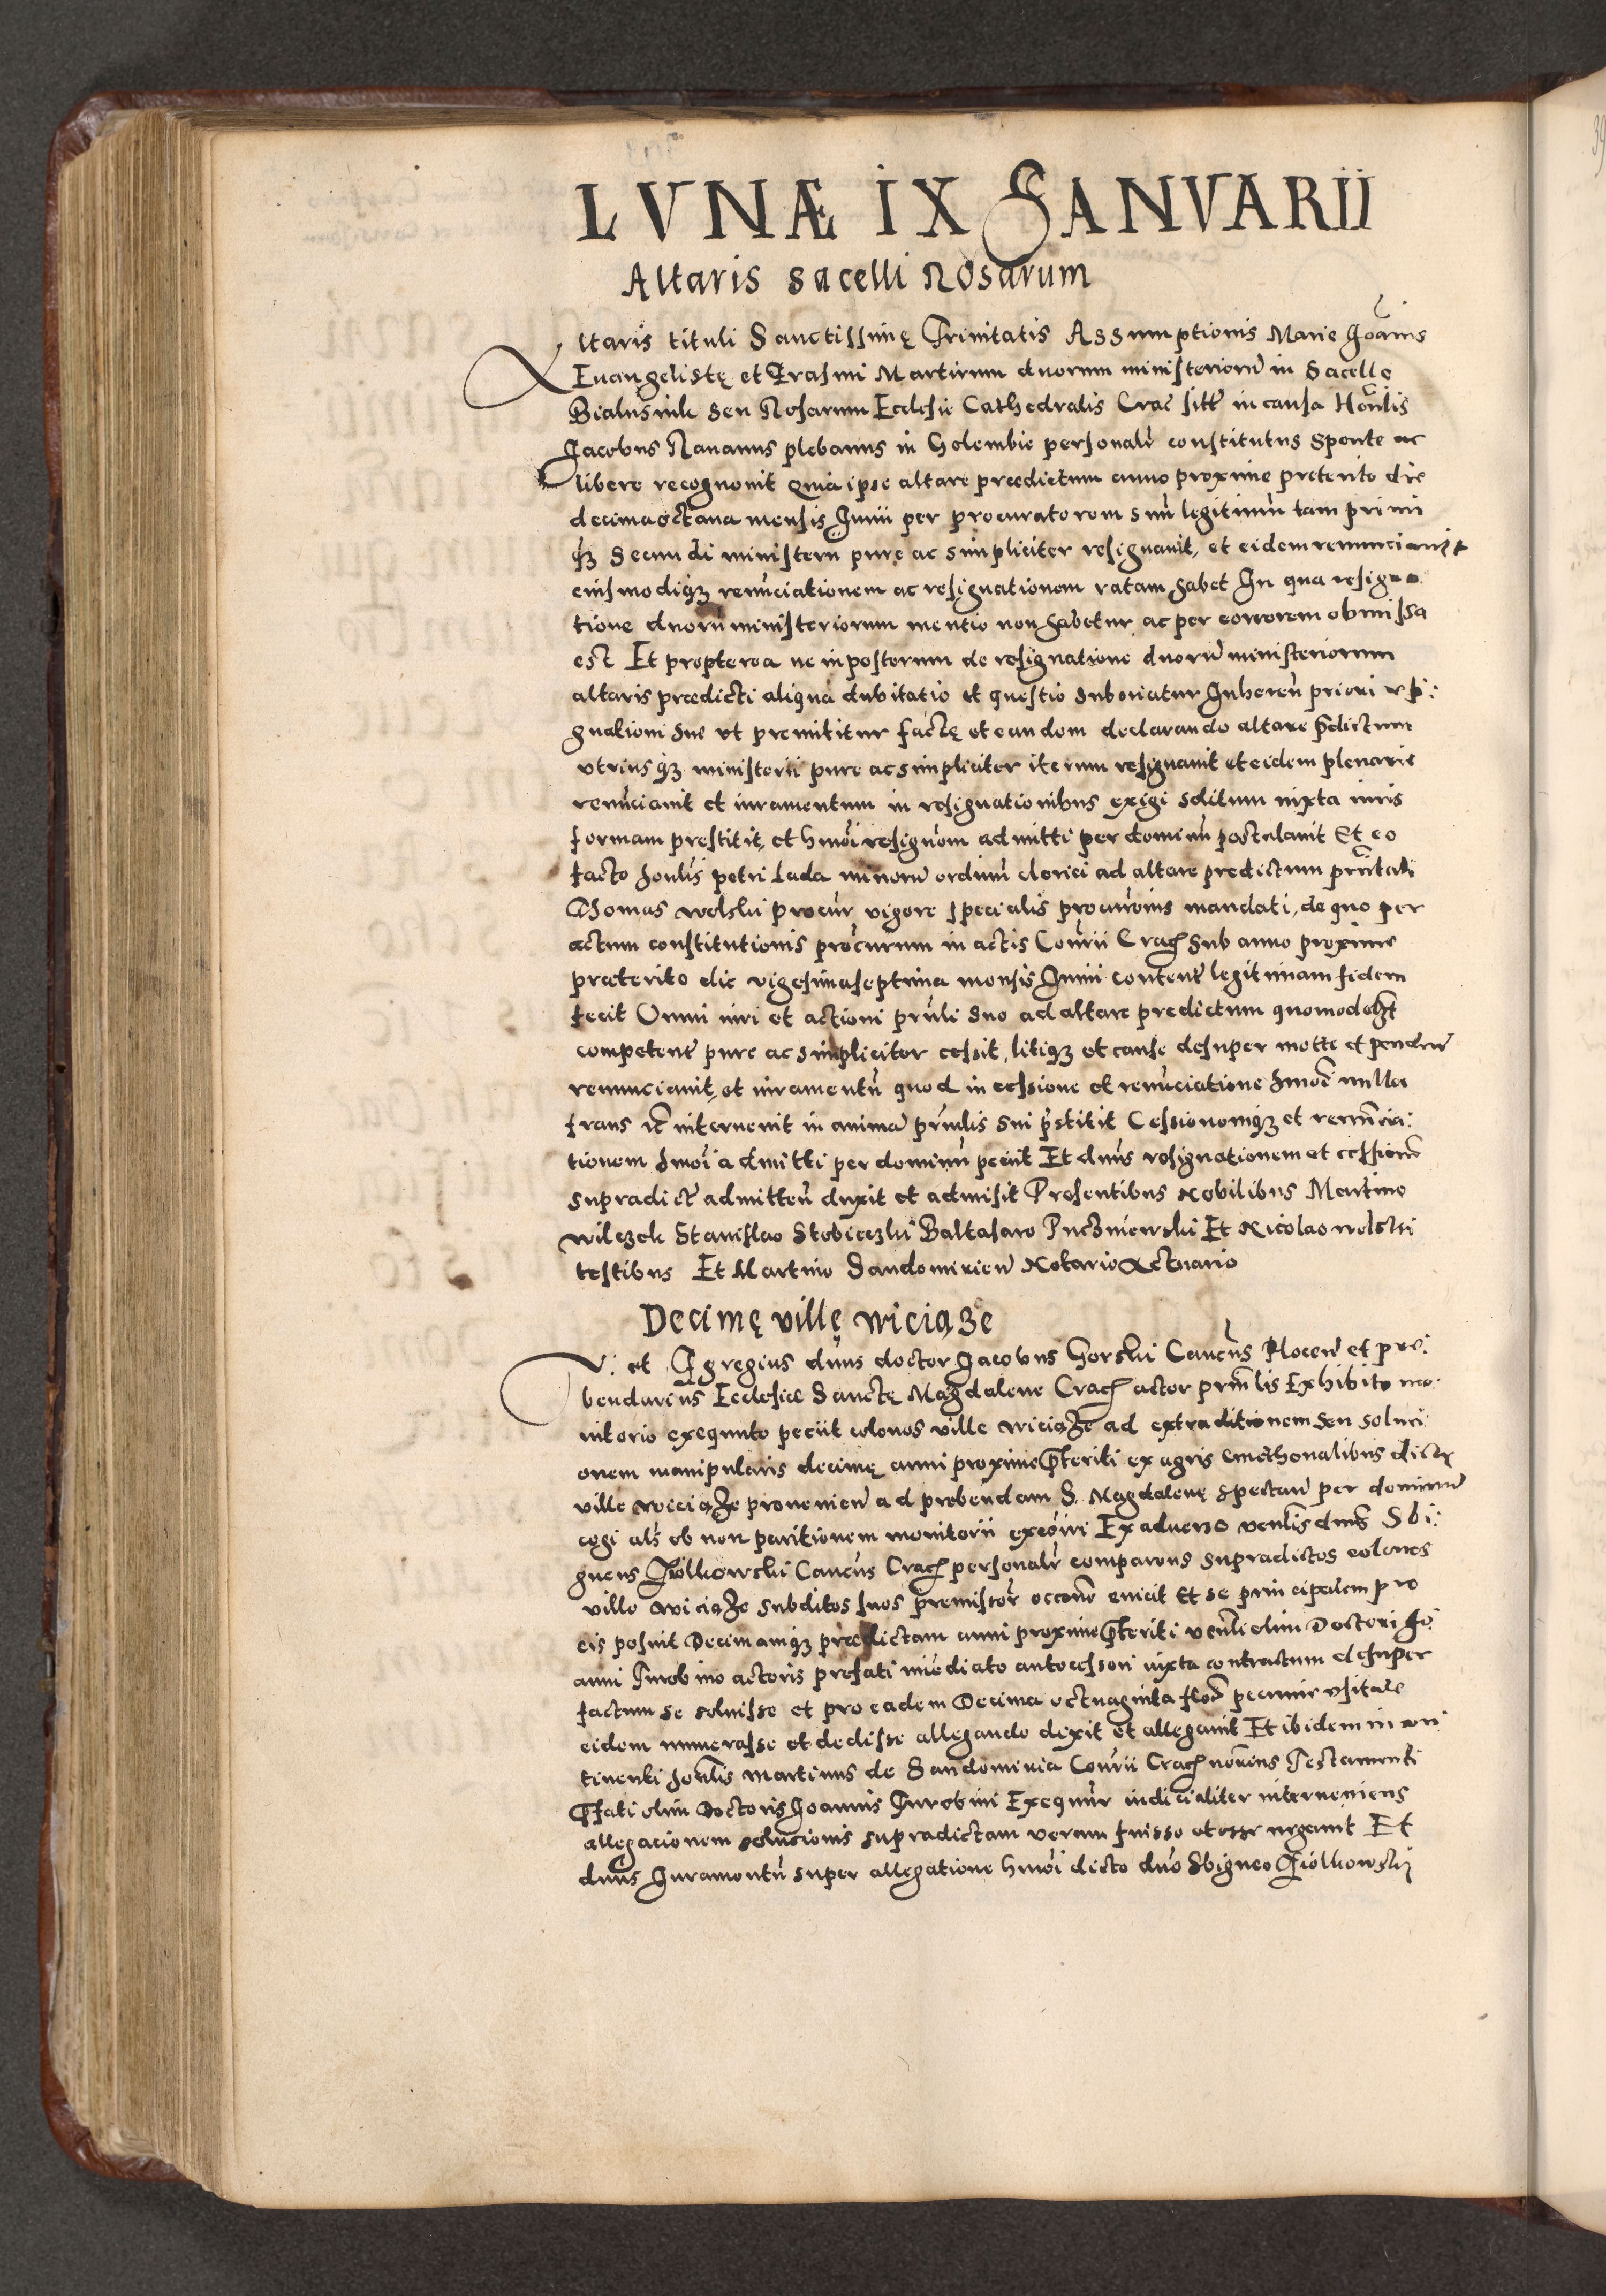 LVNÆ IX IANVARII
Altaris sacelli Rosarum
Altaris tituli Sanctissimę Trinitatis Assumptionis Marie Joānis
Euangelistę et Erasmi Martirum duorum ministeriorū in Sacello
Bialusnik seu Rosarum Ecclesie Cathedralis Crac̄ sitt̄ in causa Honlis
Jacobus Rananus plebanus in Golembie personalr̄ constitutus sponte ac
libere recognouit Quia ipse altare prædictum anno proxime preterito die
decimaoctaua mensis Junii per procuratorem suū legitimū tam primi
q̄ꝫ Secundi ministerii pure ac simpliciter resignauit, et eidem renunciauit
eiusmodiqꝫ renūciationem ac resignationem ratam habet In qua resigna
tione duorū ministeriorum mentio non habetur, ac per eorrorem obmissa
est Et propterea ne inposterum de resignatione duorū ministeriorum
altaris prædicti aliqua dubitatio et questio suboriatur Inheren̄ priori resi:
gnationi sue vt premititur factę et eandem declarando altare p̄dictum
vtriusqꝫ ministerii pure ac simpliciter iterum resignauit et eidem plenarie
renūciauit et iuramentum in resignationibus exigi solitum iuxta iuris
formam prestitit, et hmōi resignōm admitti per dominū postulauit Et eo
facto honlis petri Lada minorū ordinū clerici ad altare predictum prn̄tati
Thomas wolski procur̄ vigore specialis procurōnis mandati, de quo per
actum constitutionis procurum in actis Cōnrii Crac̄ sub anno proxime
præterito die vigesimaseptima mensis Junii content̄ legitimam fidem
fecit Omni iuri et actioni prn̄li suo ad altare predictum quomodolt̄
competent̄ pure ac simpliciter cessit, litiqꝫ et cause desuper motte et penden̄
renunciauit, et iuramentū quod in cessione et renūciatione hmōi nulla
fraus ec̄ interuenit in animā prn̄lis sui p̄stitit Cessionemqꝫ et renūcia:
tionem hmōi admitti per dominū peciit Et dn̄us resignationem et cessionē
supradict̄ admitten̄ duxit et admisit Presentibus Nobilibus Martino
wilczek Stanislao Stobieczki Baltasaro Puczniewski Et Nicolao wolski
testibus Et Martino Sandomirien̄ Notario Actuario
Decimę villę wiciąze
V. et Egregius dn̄us doctor Jacobus Gorski Canc̄us Plocen̄ et pre:
bendarius Ecclesiæ Sanctę Magdalene Crac̄ actor prn̄lis Exhibito mo:
nitorio exequuto peciit colonos ville wiciąze ad extraditionem seu soluti:
onem manipularis decimę anni proxime p̄teriti ex agris cmethonalibus dictę
ville wiciąze prouenien̄ ad prebendam S. Magdalenę spectan̄ per dominū
cogi als̄ ob non paritionem monitorii excōiri Ex aduerso venlis dn̄s Sbi:
gneus Ziolkowski Canc̄us Crac̄ personalr̄ comparens supradictos colonos
ville wiciąze subditos suos premissor̄ occōne euicit Et se principalem pro
eis posuit Decimamqꝫ prædictam anni proxime p̄teriti venli olim Doctori Jo:
anni Turobino actoris prefati imēdiato antecessori iuxta contractum desuper
factum se soluisse et pro eadem Decima octuaginta floꝫ pecunie vsitale
eidem numerasse et dedisse allegando dixit et allegauit Et ibidem in con
tinenti honlis martinus de Sandomiria Cōnrii Crac̄ nōrius Testamenti
p̄fati olim Doctoris Joannis Turobini Exequūr iudicialiter interueniens
allegacionem solucionis supradictam veram fuisse et esse negauit Et
dn̄us Juramentū super allegatione hmōi dicto dn̄o Sbigneo Ziolkowskj